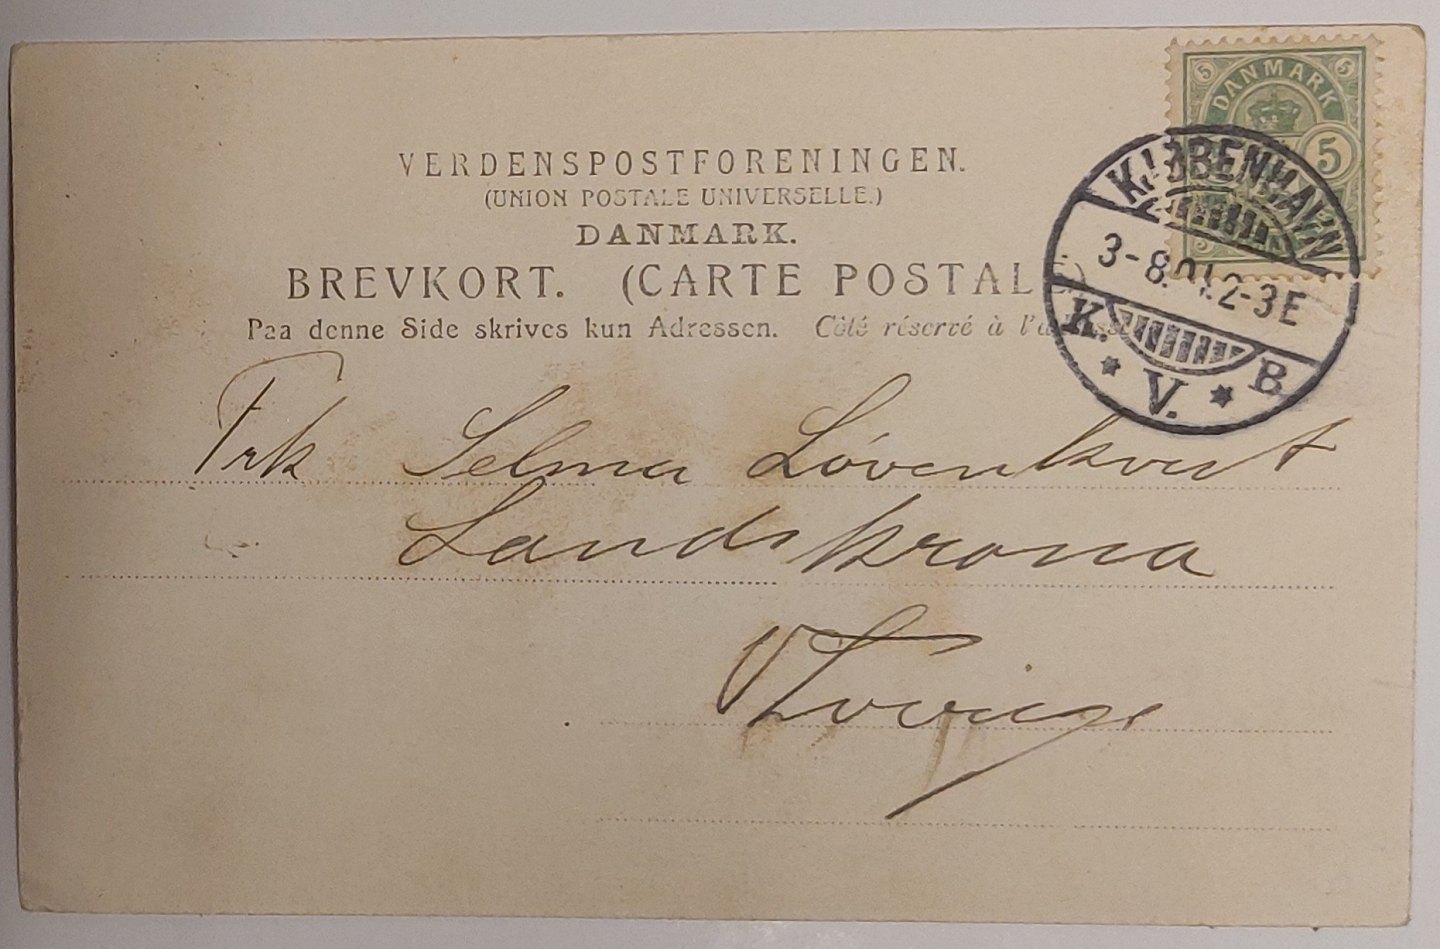 5 DANMARK 5
5
VERDENSPOSTFORENINGEN.
(UNION POSTALE UNIVERSELLE.)
DANMARK.
BREVKORT. (CARTE POSTALE)
Paa denne Side skrives kun Adressen. Côté réservé à l'adresse
KJØBENHAVN
3-8.01.2-3E
K. V. B.
Frk Selma Lövenkvist
Landskrona
Sverige